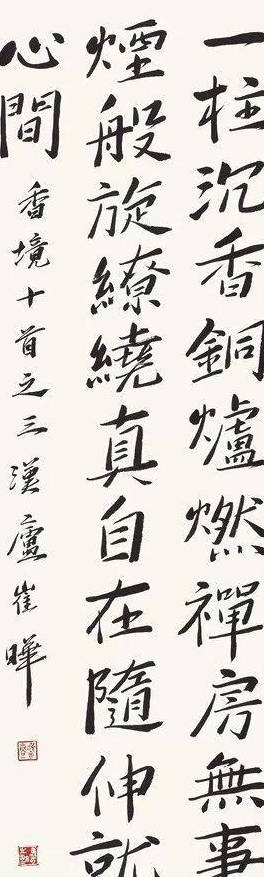 一柱沉香銅爐燃禪房無事
煙般旋繚繞真自在隨伸就
心間
香境十首之三漢廬崔暐